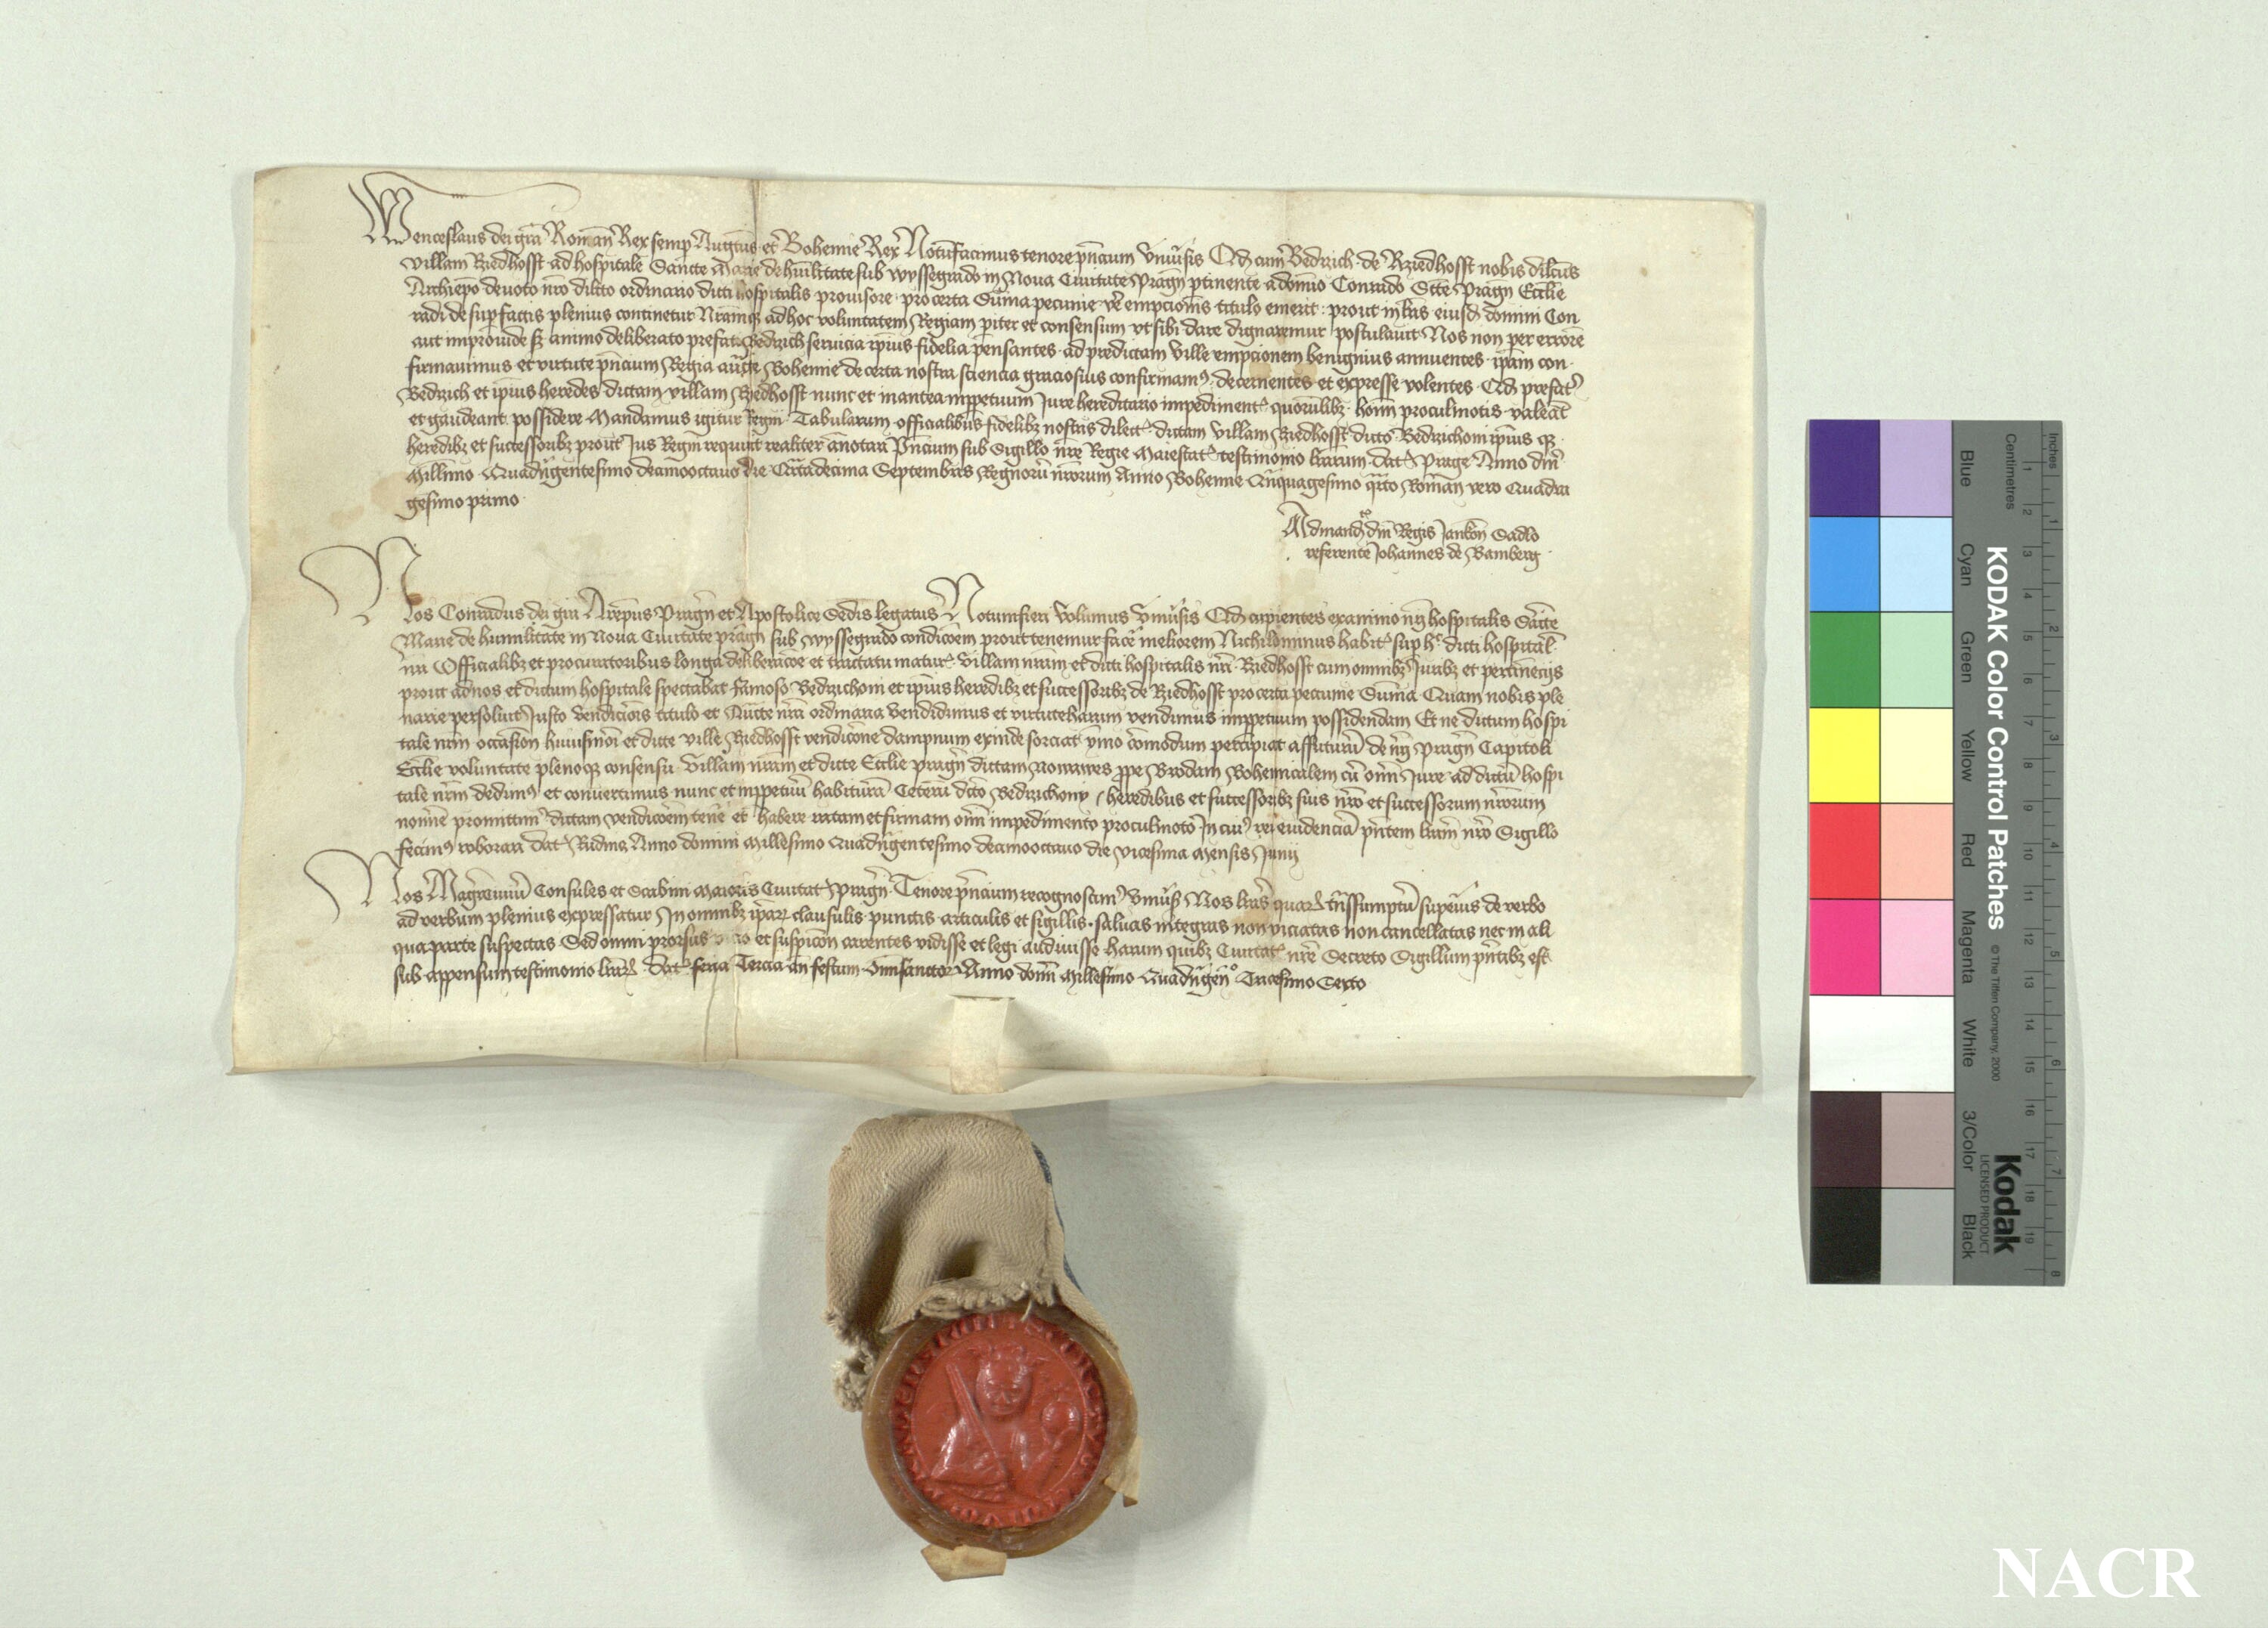 Wenceslaus dei gra Roman Rex semp Augtus et Bohemie Rex Notumfacimus tenore pncium Vniusis Qd cum Bedrzich de Rziedhosst nobis dilcus
villam Rziedhosst ad hospitale Sancte Marie de humilitate sub Wyssegrado in Noua Ciuitate Pragn ptinente a domino Conrado Scte Pragn Ecclie
Archiepo deuoto nro dilcto ordinario dicti hospitalis prouisore pro certa Suma pecunie vere empcionis titulo emerit prout in lris eiusd domini Con
radi desup factis plenius continetur Nramqz ad hoc voluntatem Regiam piter et consensum vt sibi dare dignaremur postulauit Nos non per errorem
aut improuide sz animo deliberato prefati Bedrzich seruicia ipius fidelia pensantes ad predictam ville empcionem benignius annuentes ipam con
firmauimus et virtute pncium Regia aucte Bohemie de certa nostra sciencia graciosius confirmam9 decernentes et expresse volentes Qd prefat9
Bedrzich et ipius heredes dictam villam Rziedhosst nunc et inantea inppetuum Jure hereditario impediment quorulibz homi proculmotis valeat
et gaudeant possidere Mandamus igitur Regni Tabularum officialibus fidelibz nostris dilect dictam villam Rziedhosst dicto Bedrzichoni ipius qz
heredibz et successoribz prout Jus Regni requirit realiter annotari Pncium sub Sigillo nre Regie Maiestat testimonio lrarum dat Prage Anno dni
Millimo Quadringentesimo decimooctauo die Quartadecima Septembris Regnoru nrorum Anno Bohemie Quinquagesimo qrto Roman vero Quadra
gesimo primo
Ad mandm dni Regis Jankon Sadlo
referente Johannes de Bamberg
Nos Conradus dei gra Arepus Pragn et Apostolice Sedis legatus Notumfieri Volumus Vniusis Qd cupientes ex animo nri hospitalis Scte
Marie de humilitate in Noua Ciuitate pragn sub Wyssegrado condicoem prout tenemur facere meliorem Nichilominus habit sup hc dicti hospital
nri Officialibz et procuratoribus longa deliberacoe et tractatu matur villam nram et dicti hospitalis nri Rziedhosst cum omnibz Juribz et pertinencijs
prout ad nos et dictum hospitale spectabat famoso Bedrzichoni et ipius heredibz et successoribz de Rziedhosst pro certa pecunie Suma Quam nobis ple
narie persoluit Justo vendicois titulo et Aucte nra ordinaria vendidimus et virtute harum vendimus inppetuum possidendam Et ne dictum hospi
tale nrm occasion huiusmoi et dicte ville Rziedhosst vendicone dampnum exinde sorciat ymo comodum percipiat affuturu de nri Pragn Capitoli
Ecclie voluntate plenoqz consensu villam nram et dicte Ecclie pragn dictam prope Brodam Bohemicalem cu omi Jure ad dictu hospi
tale nrm dedim9 et conuertimus nunc et inppetuu habitura Ceteru dicto Bedrzichony heredibus et successoribz suis nro et successorum nrorum
nomine promittim9 dictam vendicoem tenere et habere ratam et firmam omi impedimento proculmoto In cui9 rei euidencia pntem lram nro Sigillo
fecim9 roborari dat Rudnic Anno domini Millesimo Quadringentesimo decimooctauo die vicesima Mensis Junij
Nos Magrciuiu Consules et Scabini Maioris Ciuitat Pragn Tenore pncium recognoscim9 Vniusis Nos lras quar trassumptu superius de verbo
ad verbum plenius expressatur In omnibz ipar clausulis punctis articulis et sigillis saluas integras non viciatas non cancellatas nec in ali
qua parte suspectas Sed omni prorsus vicio et suspicon carentes vidisse et legi audiuisse harum quibz Ciuitat nre Secreto Sigillum pntibz est
sub appensum testimonio lrar dat feria Tercia an festum Omsanctor Anno domi Millesimo Quadringen Tricesimo Sexto
KODAK Color Control Patches
© The Tiffen Company, 2000
Kodak
LICENSED PRODUCT
Blue
Cyan
Green
Yellow
Red
Magenta
White
3/Color
Black
Inches
Centimetres
1 2 3 4 5 6 7 8 9 10 11 12 13 14 15 16 17 18 19
1 2 3 4 5 6 7 8
NACR